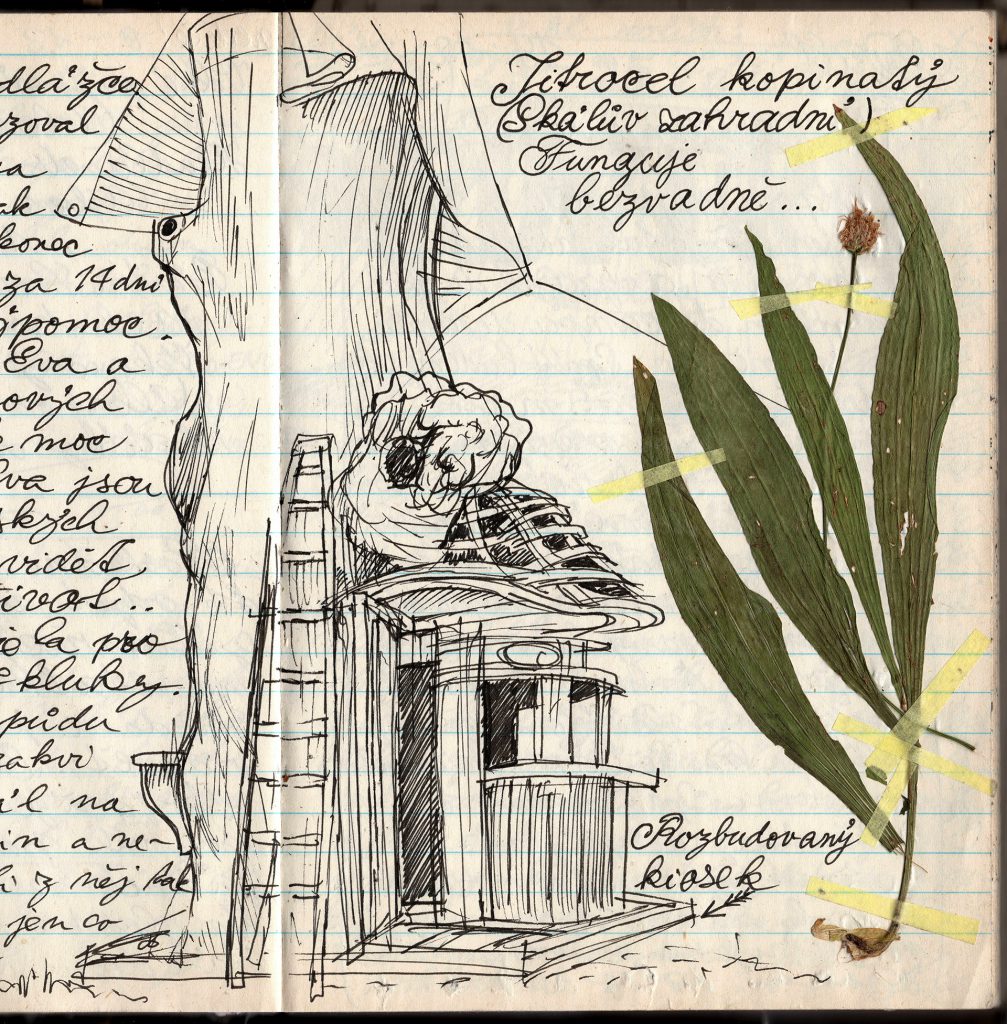 dlážce
zoval
a
ak
konec
za 14 dní
ýpomoc.
Eva a
ových
e moc
Eva jsou
ských
vidět,
ivot..
la pro
é kluky.
půdu
rakvi
ál na
in a ne-
i z něj tak
jen co
Jitrocel kopinatý
(Skálův zahradní)
Funguje
bezvadně...
Rozbudovaný
kiosek